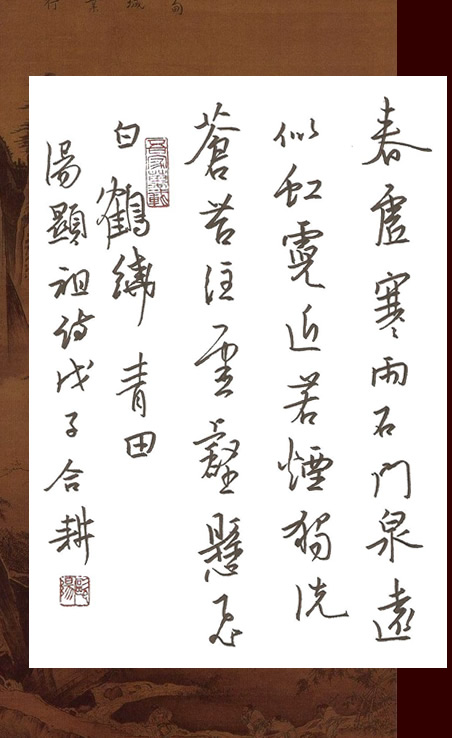 春虛寒雨石門泉遠
似虹霓近若煙獨洗
蒼苔注雲壑懸飛
白鶴繞青田
湯顯祖詩戊子合耕